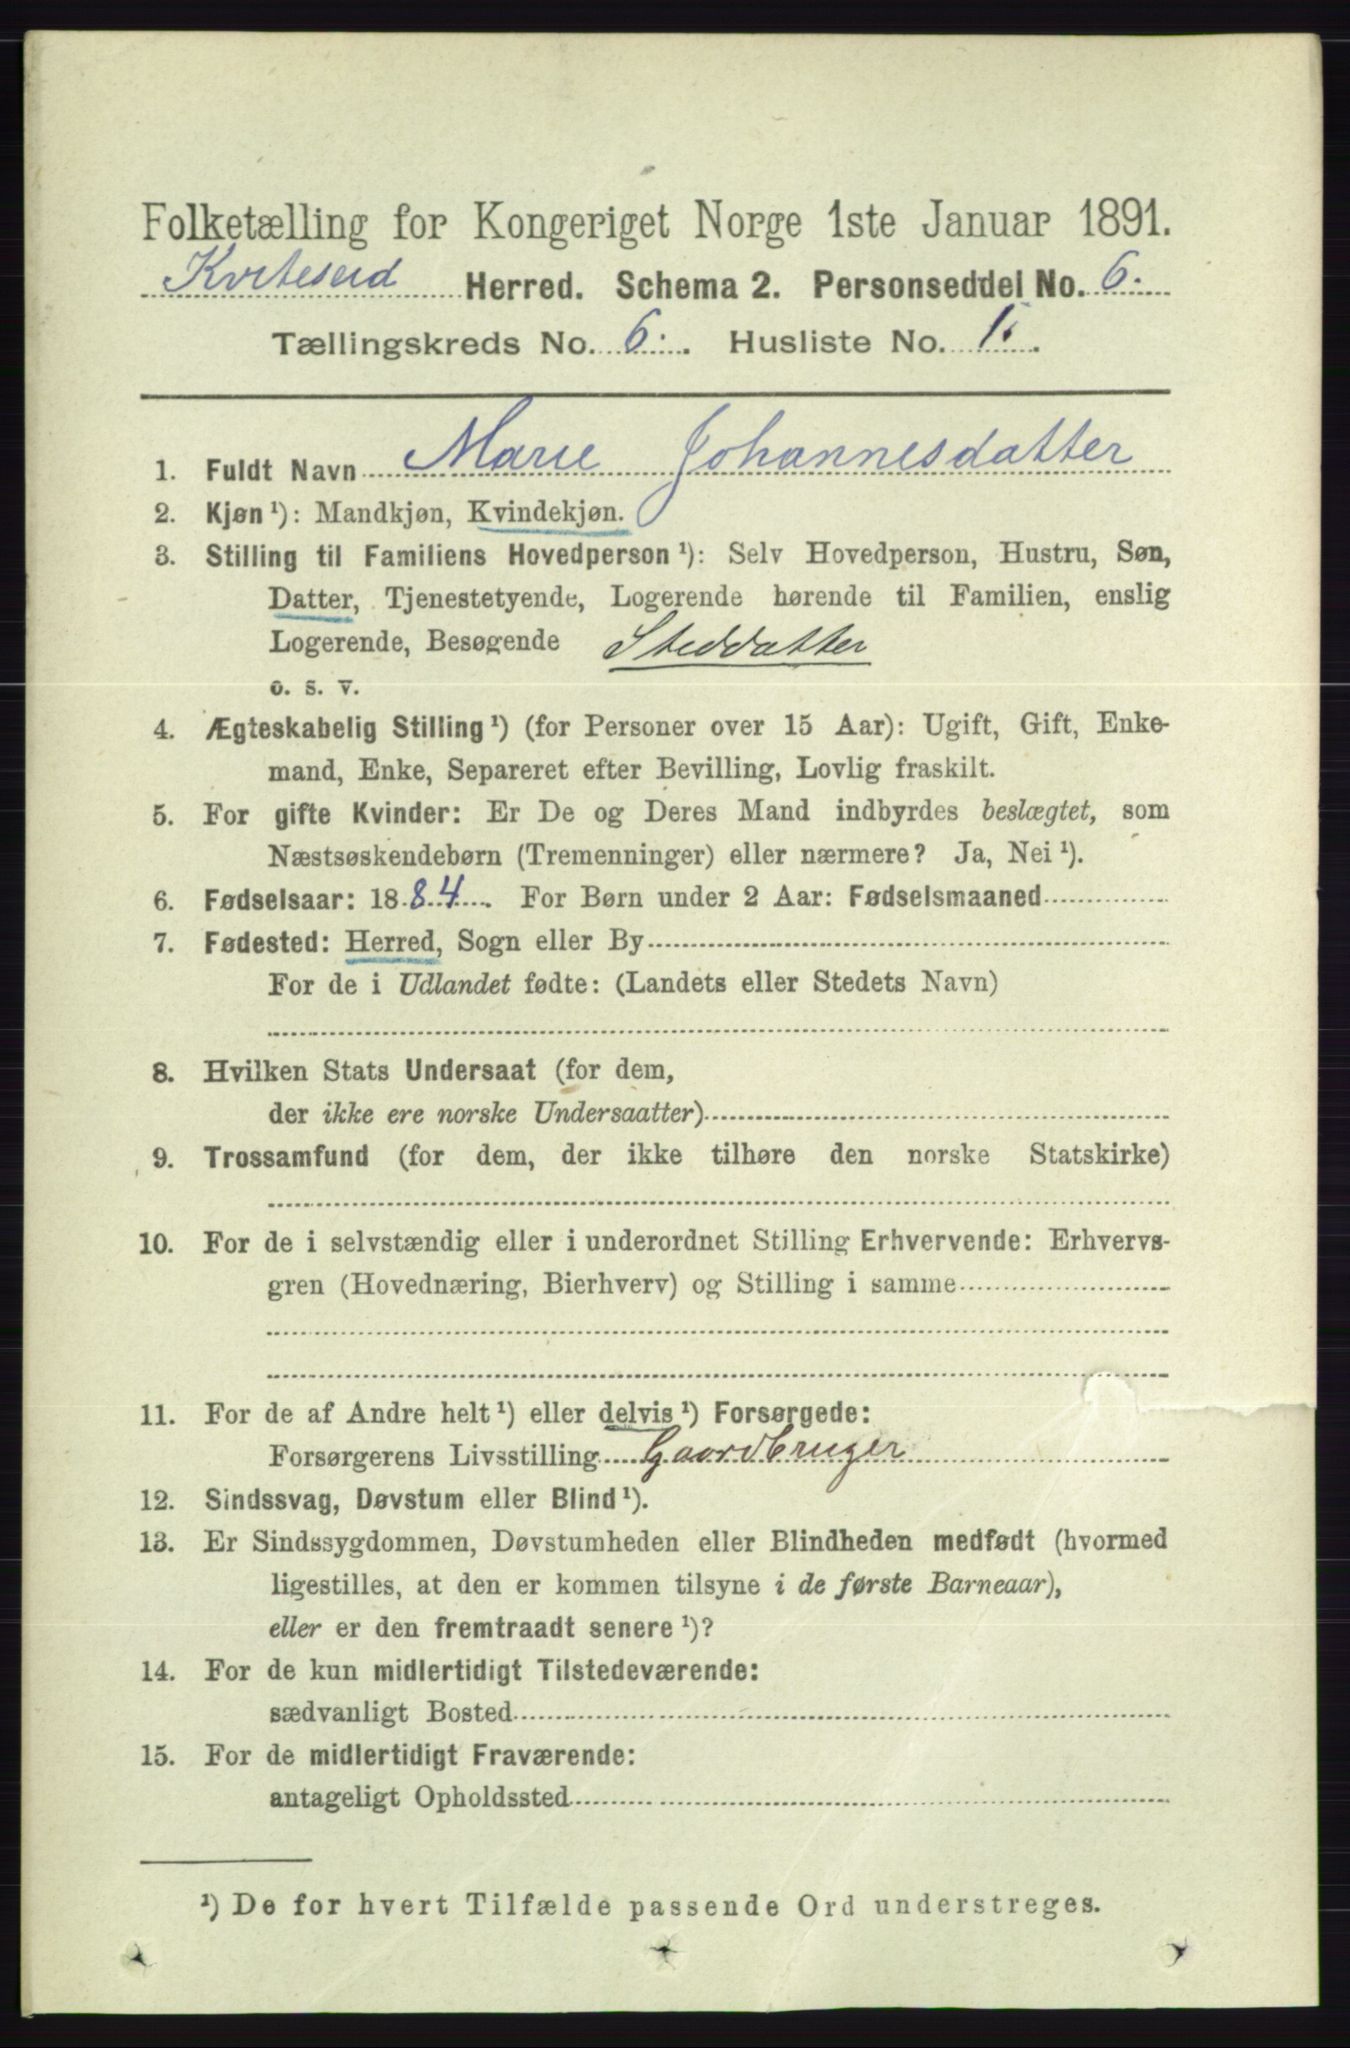 Folketælling for Kongeriget Norge 1ste Januar 1891.
Kviteseid Herred. Schema 2. Personseddel No. 6.
Tællingskreds No. 6. Husliste No. 1.
1. Fuldt Navn Marie Johannesdatter
2. Kjøn¹): Mandkjøn, Kvindekjøn.
3. Stilling til Familiens Hovedperson¹): Selv Hovedperson, Hustru, Søn,
Datter, Tjenestetyende, Logerende hørende til Familien, enslig
Logerende, Besøgende Steddatter
o. s. v.
4. Ægteskabelig Stilling¹) (for Personer over 15 Aar): Ugift, Gift, Enke-
mand, Enke, Separeret efter Bevilling, Lovlig fraskilt.
5. For gifte Kvinder: Er De og Deres Mand indbyrdes beslægtet, som
Næstsøskendebørn (Tremenninger) eller nærmere? Ja, Nei¹).
6. Fødselsaar: 1884. For Børn under 2 Aar: Fødselsmaaned
7. Fødested: Herred, Sogn eller By
For de i Udlandet fødte: (Landets eller Stedets Navn)
8. Hvilken Stats Undersaat (for dem,
der ikke ere norske Undersaatter)
9. Trossamfund (for dem, der ikke tilhøre den norske Statskirke)
10. For de i selvstændig eller i underordnet Stilling Erhvervende: Erhvervs-
gren (Hovednæring, Bierhverv) og Stilling i samme
11. For de af Andre helt¹) eller delvis¹) Forsørgede:
Forsørgerens Livsstilling Gaardbruger
12. Sindssvag, Døvstum eller Blind¹).
13. Er Sindssygdommen, Døvstumheden eller Blindheden medfødt (hvormed
ligestilles, at den er kommen tilsyne i de første Barneaar),
eller er den fremtraadt senere¹)?
14. For de kun midlertidigt Tilstedeværende:
sædvanligt Bosted
15. For de midlertidigt Fraværende:
antageligt Opholdssted
¹) De for hvert Tilfælde passende Ord understreges.